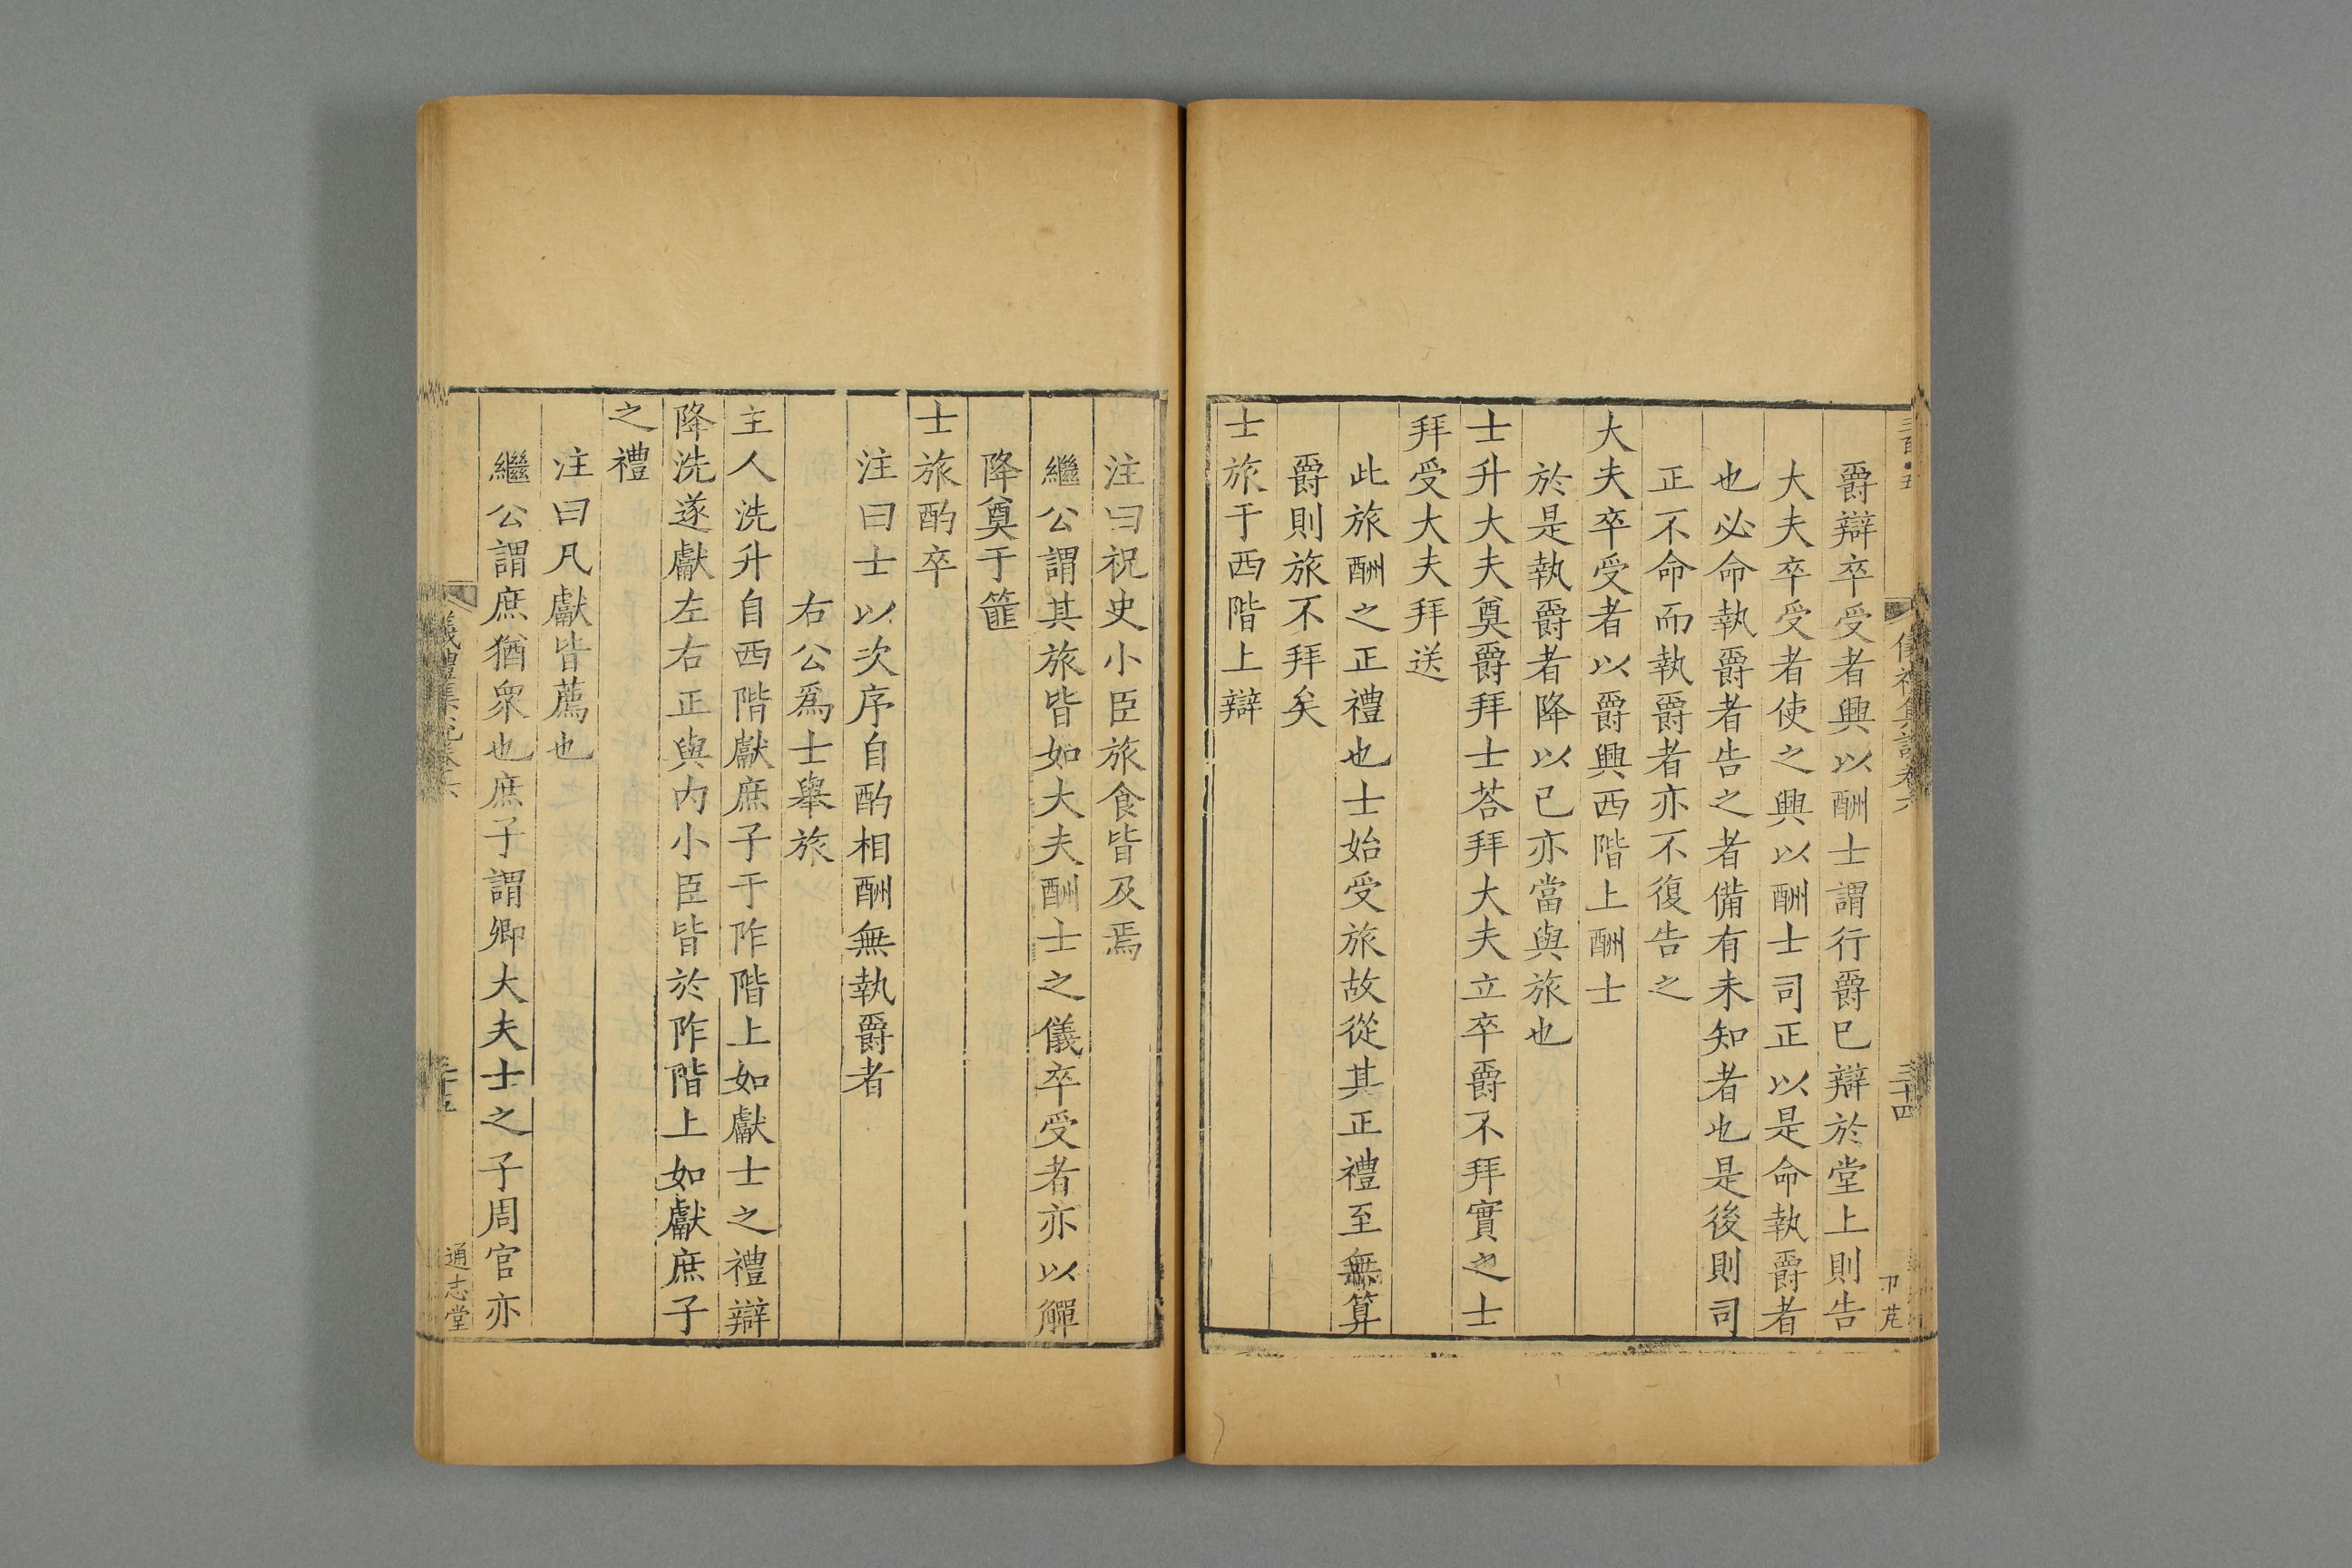 儀禮集說卷六
三十四
爵辯卒受者興以酬士謂行爵已辯於堂上則告
大夫卒受者使之興以酬士司正以是命執爵者
也必命執爵者告之者備有未知者也是後則司
正不命而執爵者亦不復告之
大夫卒受者以爵興西階上酬士
於是執爵者降以已亦當與旅也
士升大夫奠爵拜士荅拜大夫立卒爵不拜實之士
拜受大夫拜送
此旅酬之正禮也士始受旅故從其正禮至無算
爵則旅不拜矣
士旅于西階上辯
注曰祝史小臣旅食皆及焉
繼公謂其旅皆如大夫酬士之儀卒受者亦以觶
降奠于篚
士旅酌卒
注曰士以次序自酌相酬無執爵者
右公爲士舉旅
主人洗升自西階獻庶子于阼階上如獻士之禮辯
降洗遂獻左右正與內小臣皆於阼階上如獻庶子
之禮
注曰凡獻皆薦也
繼公謂庶猶衆也庶子謂卿大夫士之子周官亦
儀禮集說卷六
三十五
通志堂